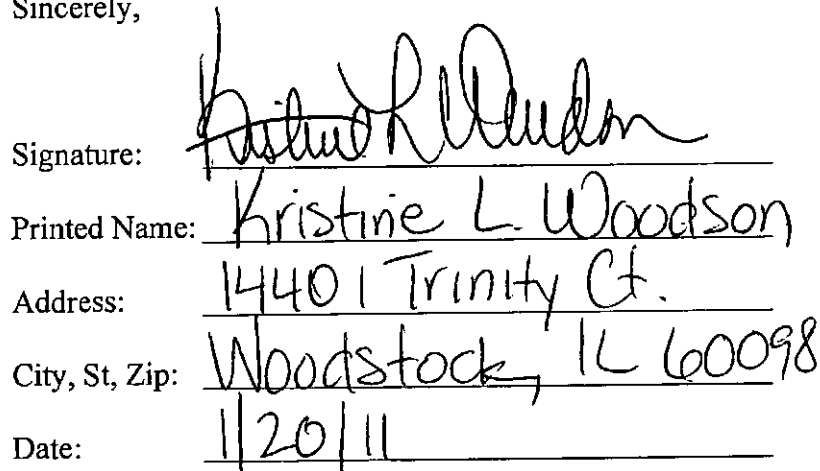 Sincerely,
Signature: Kristine L Woodson
Printed Name: Kristine L. Woodson
Address: 14401 Trinity Ct.
City, St, Zip: Woodstock, IL 60098
Date: 1/20/11